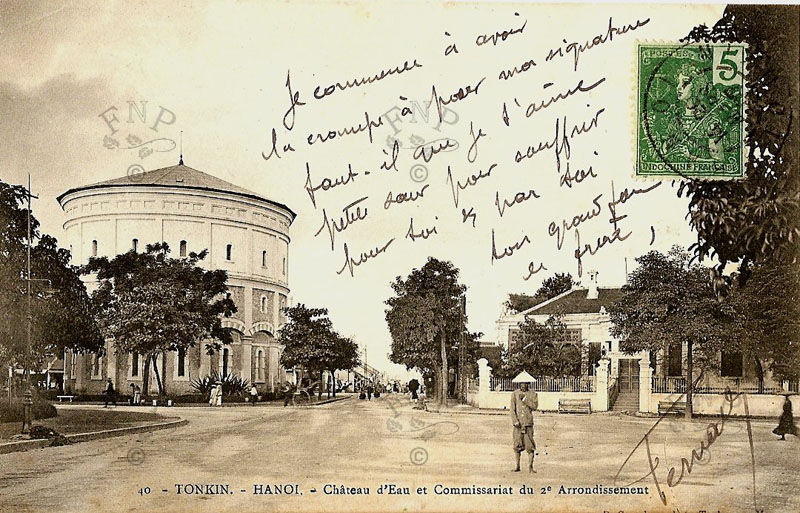 Je commence à avoir
la crampe à poser ma signature
faut-il que je t'aime
petite sœur pour souffrir
pour toi & par toi
ton grand fou
de frère,
POSTES
5
INDOCHINE FRANÇAISE
FNP
FNP
Fernand
40 - TONKIN. - HANOI. - Château d'Eau et Commissariat du 2e Arrondissement